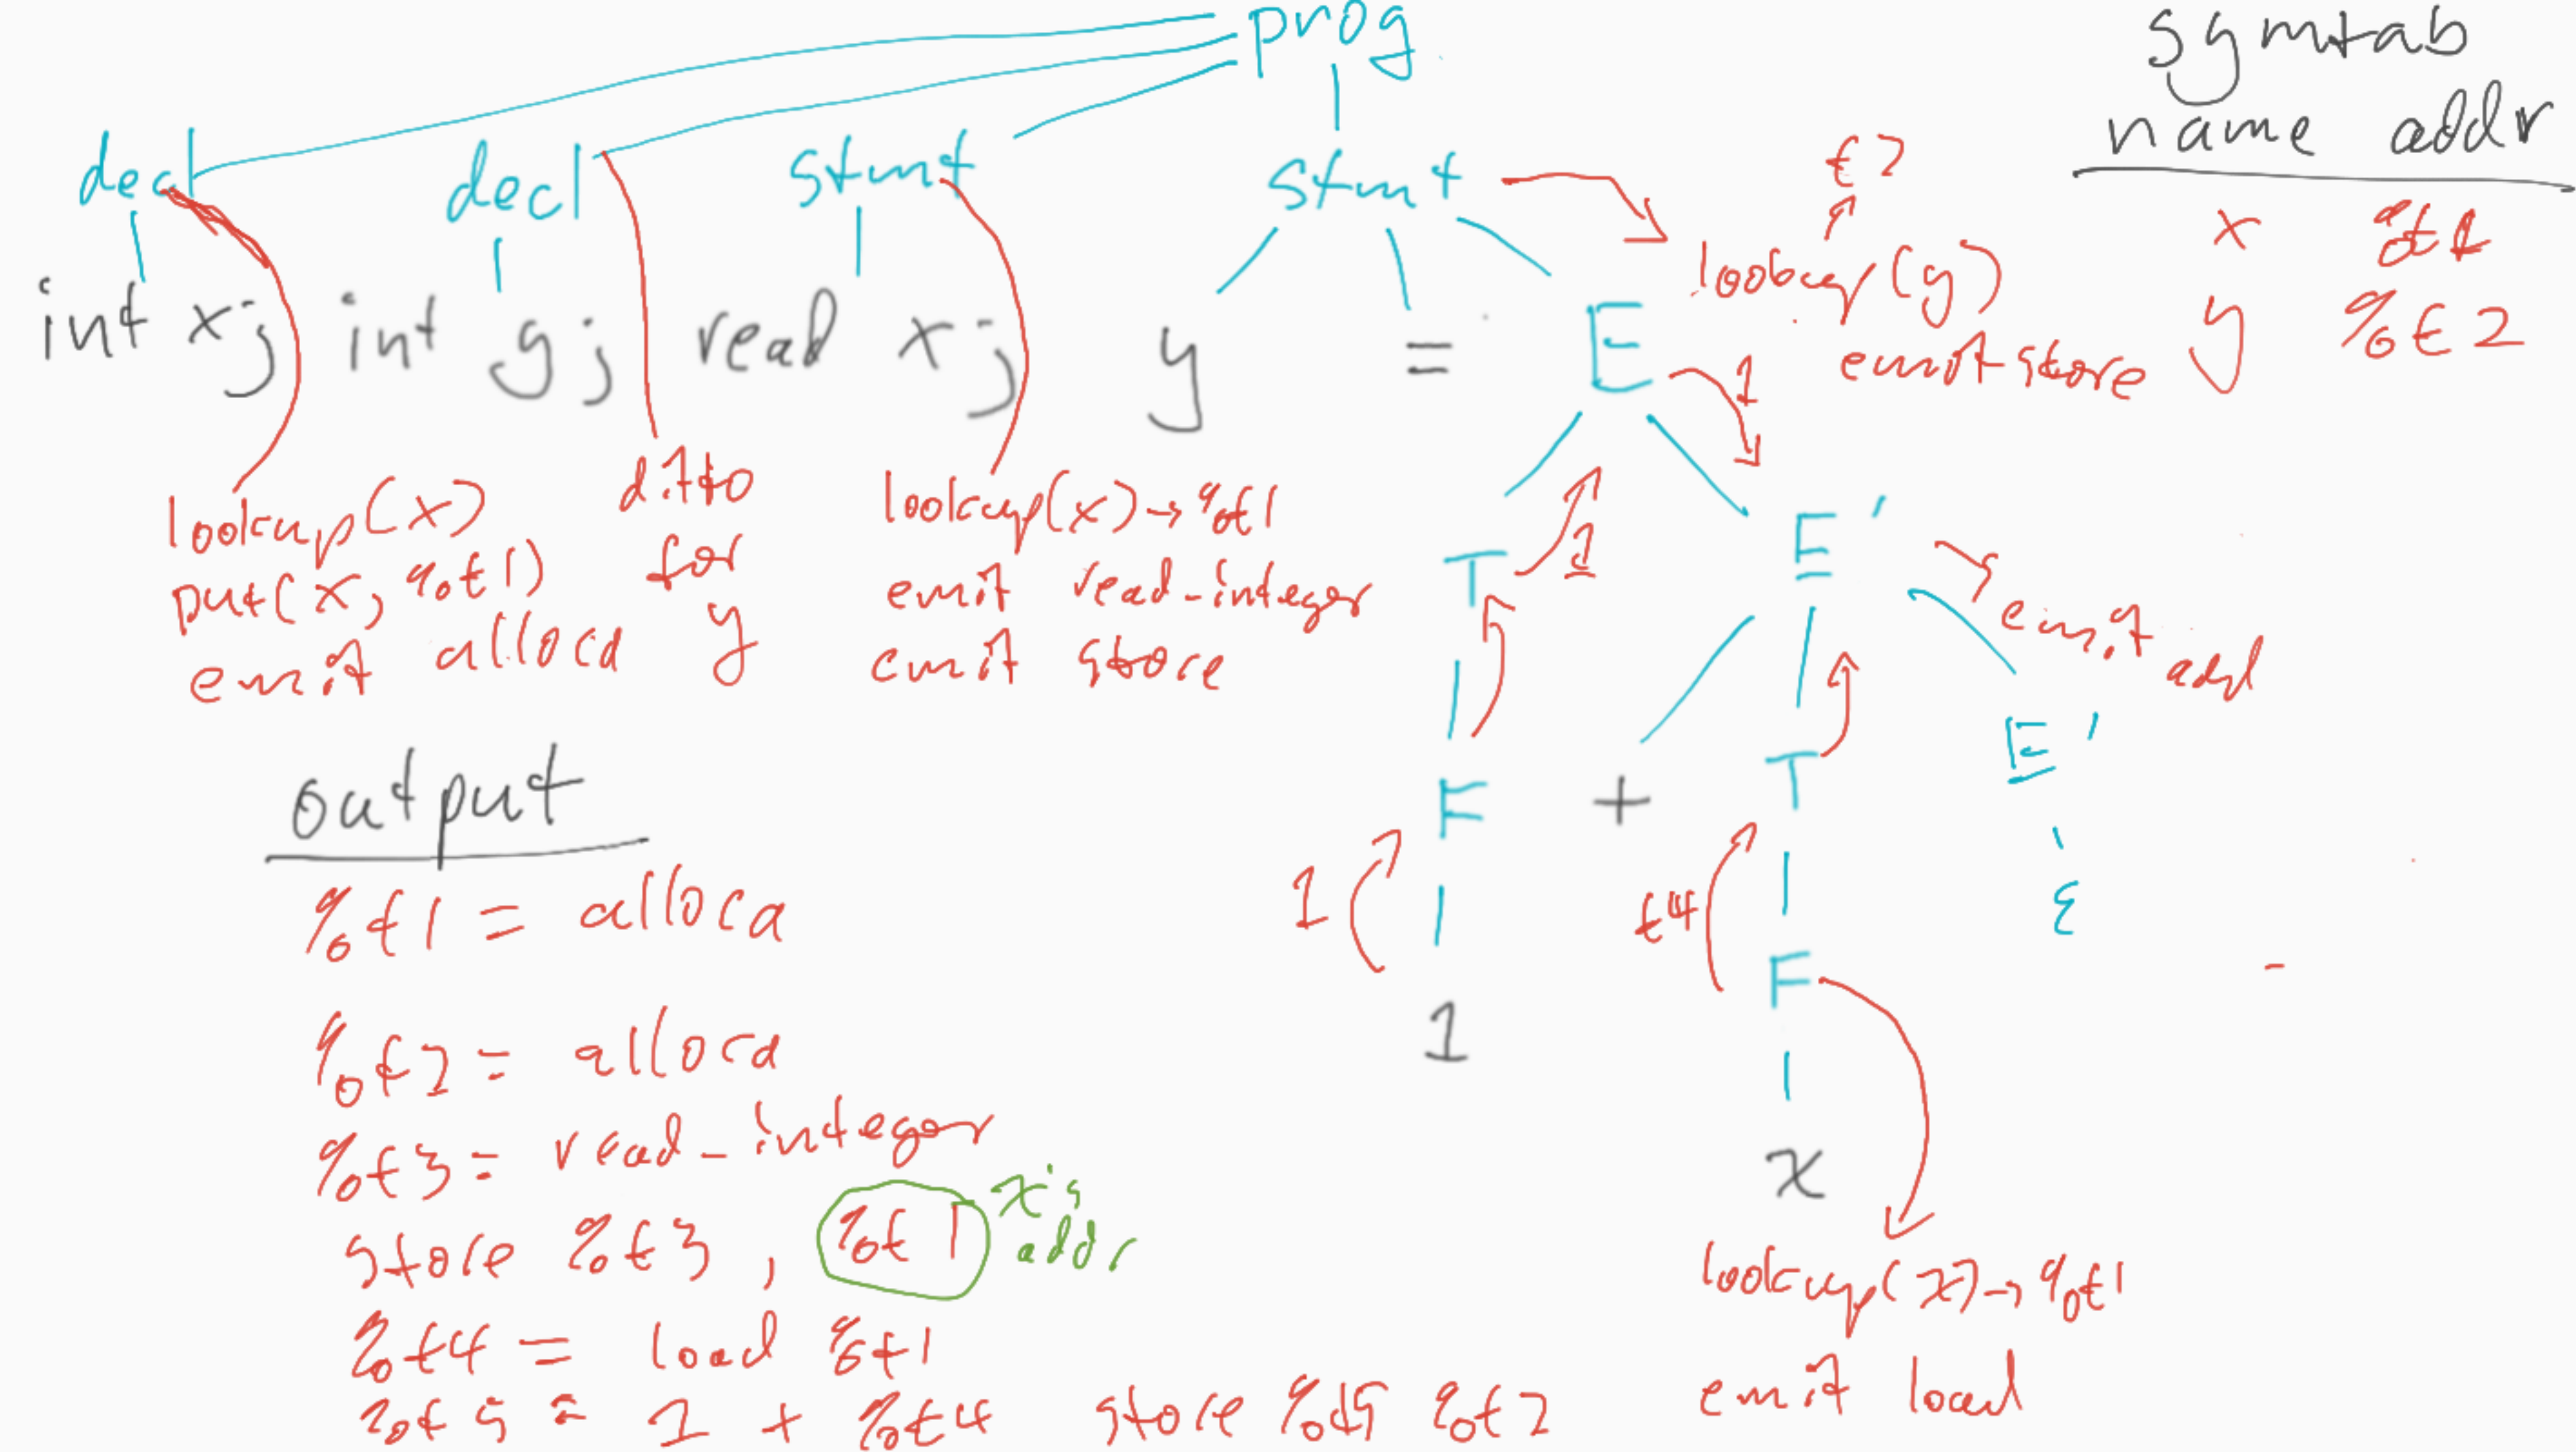 prog
symtab
name addr
x %t1
y %t2
decl decl stmt stmt
int x; int y; read x; y = E
t2
lookup(y)
emit store
1
lookup(x)
put(x, %t1)
emit alloca
ditto
for
y
lookup(x) → %t1
emit read_integer
emit store
T 1 E'
emit add
F + T E'
1 t4 ε
1 F
x
lookup(x) → %t1
emit load
output
%t1 = alloca
%t2 = alloca
%t3 = read_integer
store %t3, %t1 x's addr
%t4 = load %t1
%t5 = 1 + %t4 store %t5 %t2